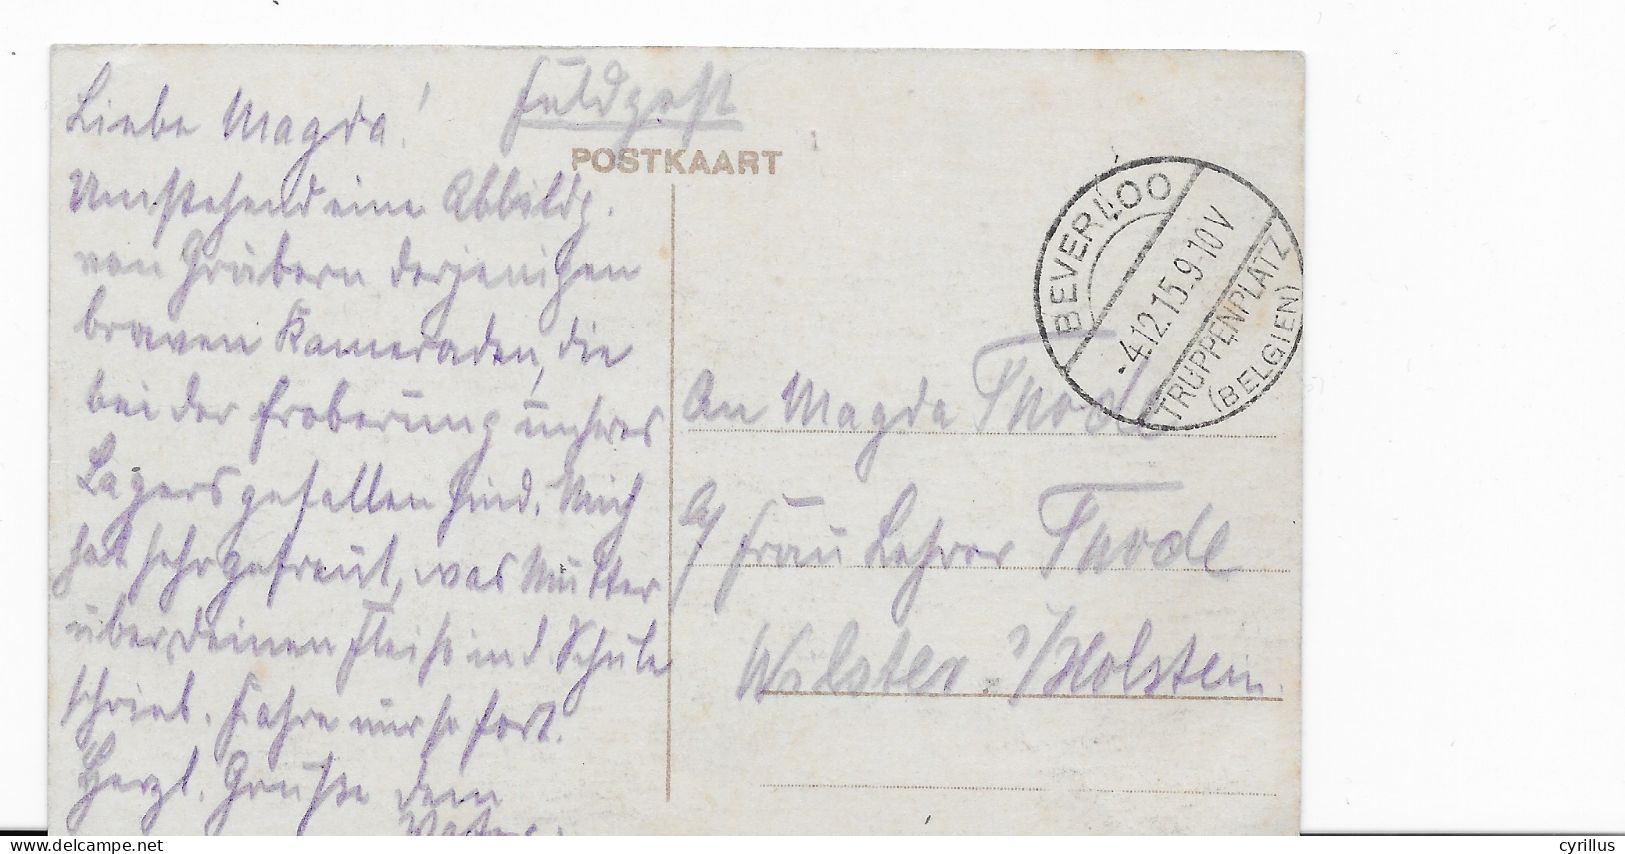 Liebe Magda!
Umstehend eine Abbildg.
von Gräbern derjenigen
braven Kameraden, die
bei der Eroberung unseres
Lagers gefallen sind. Mich
hat sehr gefreut, was Mutter
über deinen Fleiß in d. Schule
schrieb. Fahre nur so fort.
Herzl. Grüße dein
Vater.
Feldpost
POSTKAART
BEVERLOO
-4.12.15.9-10V
TRUPPENPLATZ
(BELGIEN)
An Magda Thode
Frau Lehrer Thode
Wilster i/Holstein.
cyrillus